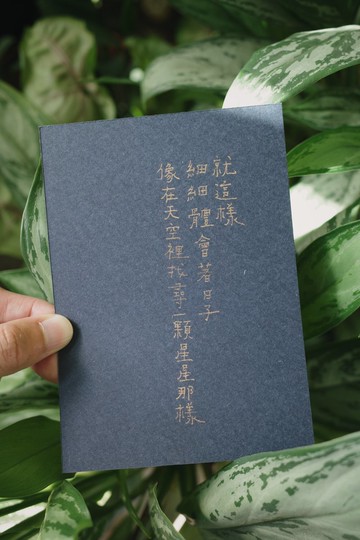 就這樣
細細體會著日子
像在天空裡找尋一顆星星那樣